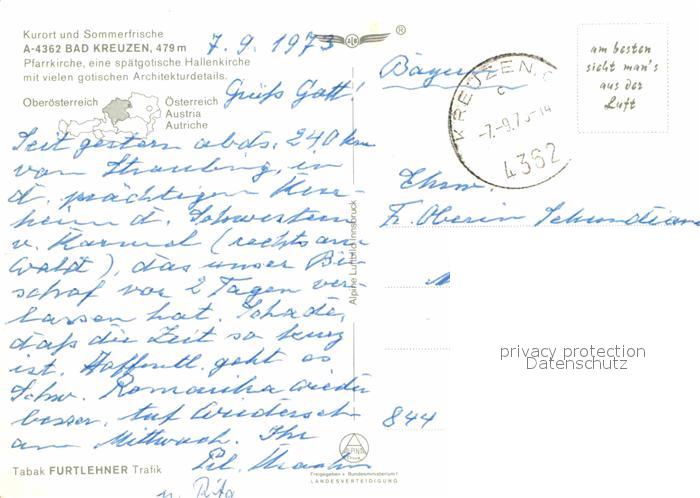 Kurort und Sommerfrische
A-4362 BAD KREUZEN, 479 m
Pfarrkirche, eine spätgotische Hallenkirche
mit vielen gotischen Architekturdetails.
Oberösterreich
Österreich
Austria
Autriche
7. 9. 1973
Grüß Gott!
Seit gestern abds. 240 km
von Straubing, in
d. prächtigen Kur-
heim d. Schwestern
v. Karmel (rechts am
Wald), das unser Bi-
schof vor 2 Tagen ver-
lassen hat. Schade,
daß die Zeit so kurz
ist. Hoffentl. geht es
Schw. Romarika wieder
besser. Auf Wiederseh
am Mittwoch. Ihr
u. Rita
Tabak FURTLEHNER Trafik
Alpine Luftbild Innsbruck
ALPINE
Freigegeben v. Bundesministerium f.
LANDESVERTEIDIGUNG
®
am besten
sieht man's
aus der
Luft
Bayern
KREUZEN
c
-7.-9.7 -14
4362
Ehrw.
Fr. Oberin
844
privacy protection
Datenschutz